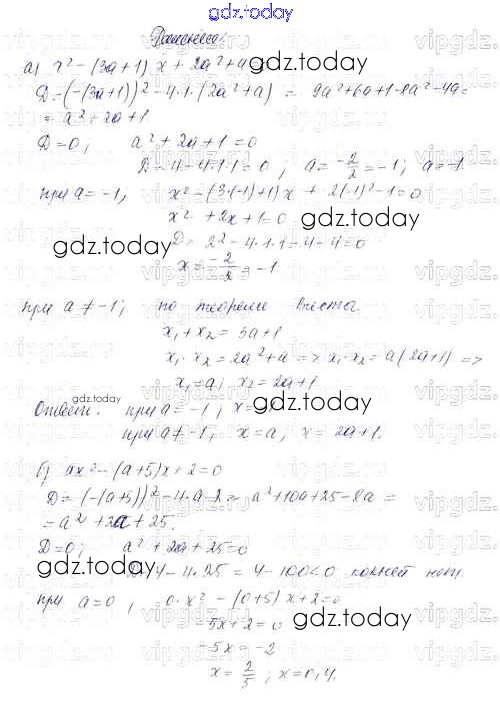 gdz.today
Решение.
а) x² - (3a+1) x + 2a² + a = 0
D = (-(3a+1))² - 4·1·(2a²+a) = 9a²+6a+1-8a²-4a =
= a²+2a+1
D=0, a²+2a+1=0
D=4-4·1·1=0, a=-2/2=-1; a=-1.
при a=-1; x²-(3·(-1)+1)x + 2(-1)²-1=0
x² +2x+1=0
gdz.today
gdz.today
D = 2²-4·1·1=4-4=0
x=-2/2=-1
при a≠-1; по теореме Виета.
x₁+x₂=3a+1
x₁·x₂=2a²+a => x₁·x₂=a(2a+1) =>
x₁=a; x₂=2a+1
gdz.today
Ответ: при a=-1; x=
gdz.today
при a≠-1; x=a; x=2a+1.
б) ax²-(a+5)x+2=0
D=(-(a+5))²-4·a·2= a²+10a+25-8a =
=a²+2a+25.
D=0; a²+2a+25=0
gdz.today
D=4-4·25=4-100<0 корней нет.
при a=0, 0·x²-(0+5)x+2=0
-5x+2=0
gdz.today
-5x=-2
x=2/5; x=0,4.